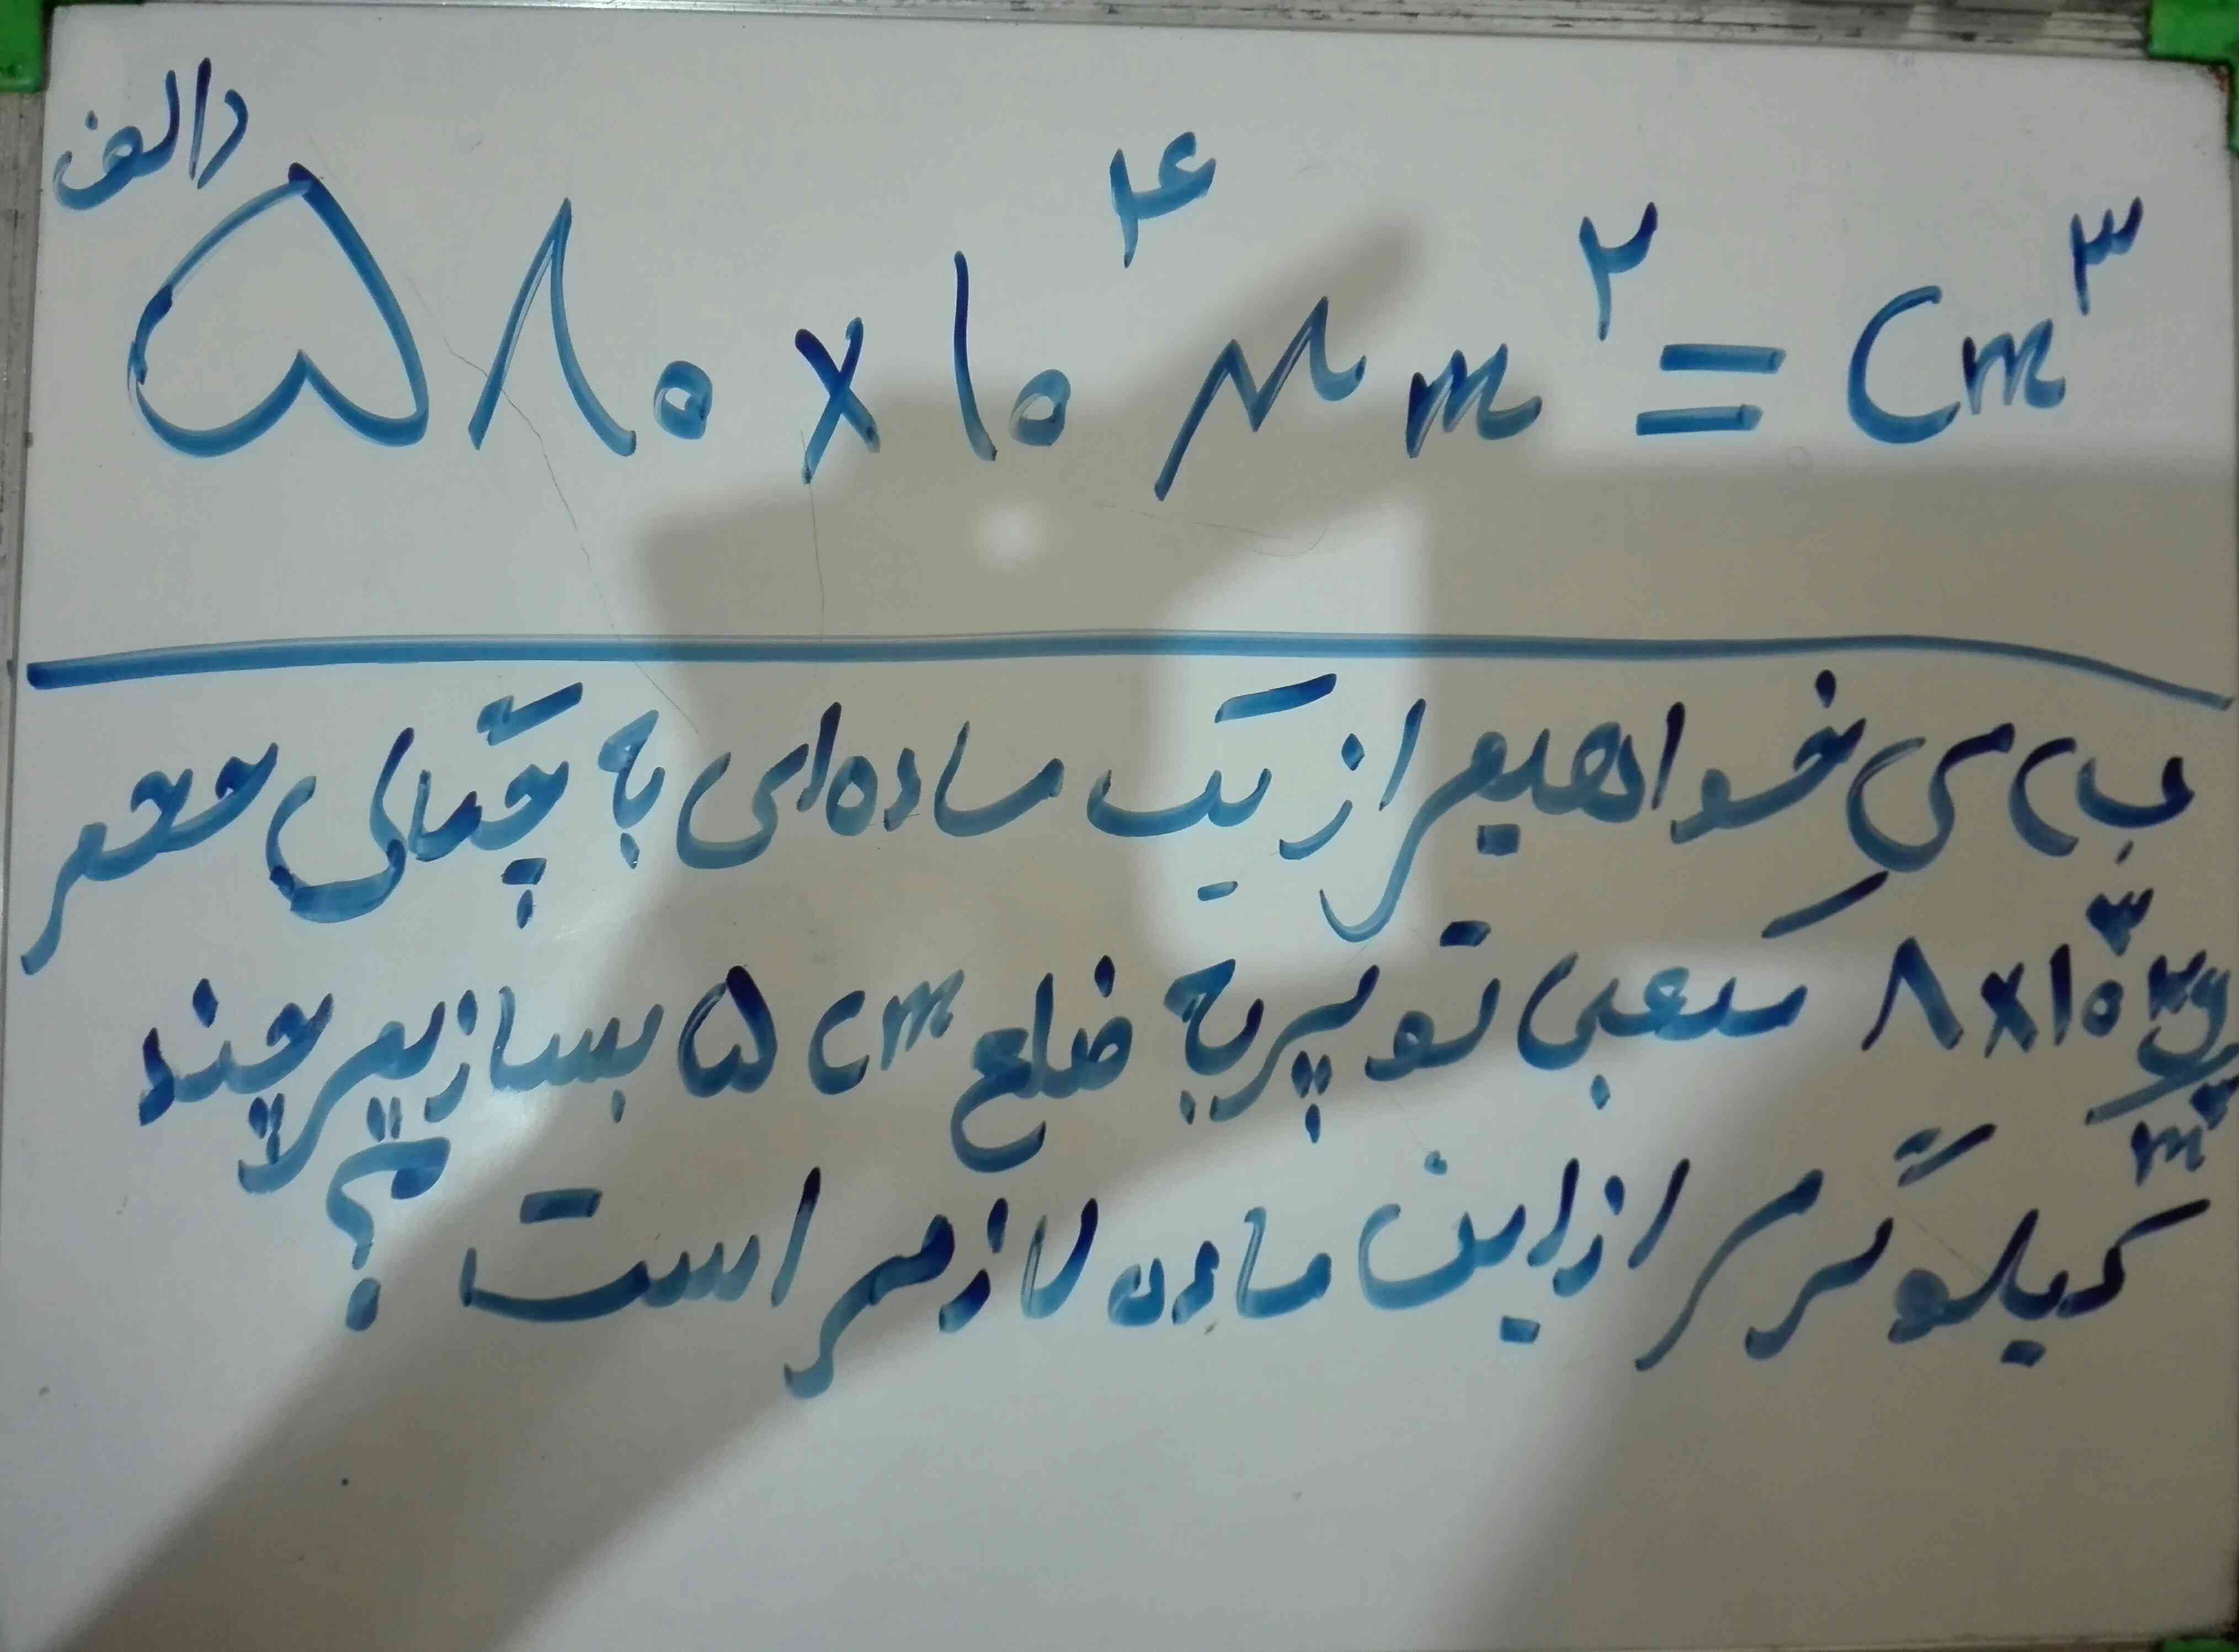 الف)
۵۸۰ × ۱۰^۴ μm^۲ = cm^۳
ب) می خواهیم از یک ماده ای با چگالی حجمی
۸×۱۰^۳ kg/m^۳ مکعبی توپر به ضلع ۵ cm بسازیم چند
کیلوگرم از این ماده لازم است ؟